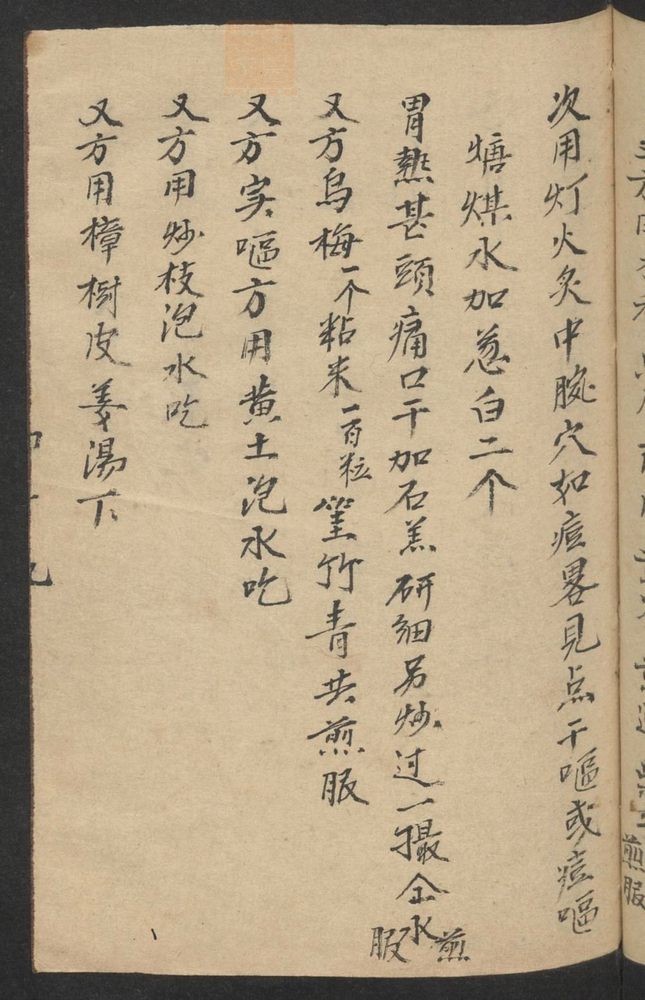 次用灯火炙中腕穴如痘畧见点干嘔或痘嘔
煻煤水加葱白二个
胃熱甚頭痛口干加石羔研细另炒过一撮仝水煎服
又方烏梅一个粘米一百粒篁竹青共煎服
又方实嘔方用黄土泡水吃
又方用炒枝泡水吃
又方用樟樹皮姜湯下